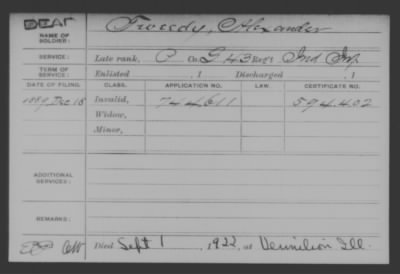 DEAF
NAME OF SOLDIER: Tweedy, Alexander
SERVICE: Late rank, P Co. G, 43 Reg't Ind Inf
TERM OF SERVICE: Enlisted , 1 Discharged , 1
DATE OF FILING. CLASS. APPLICATION NO. LAW. CERTIFICATE NO.
1889, Dec 18 Invalid, 744611 594.402
Widow,
Minor,
ADDITIONAL SERVICES:
REMARKS:
Died Sept 1 , 1922, at Vermilion Ill.